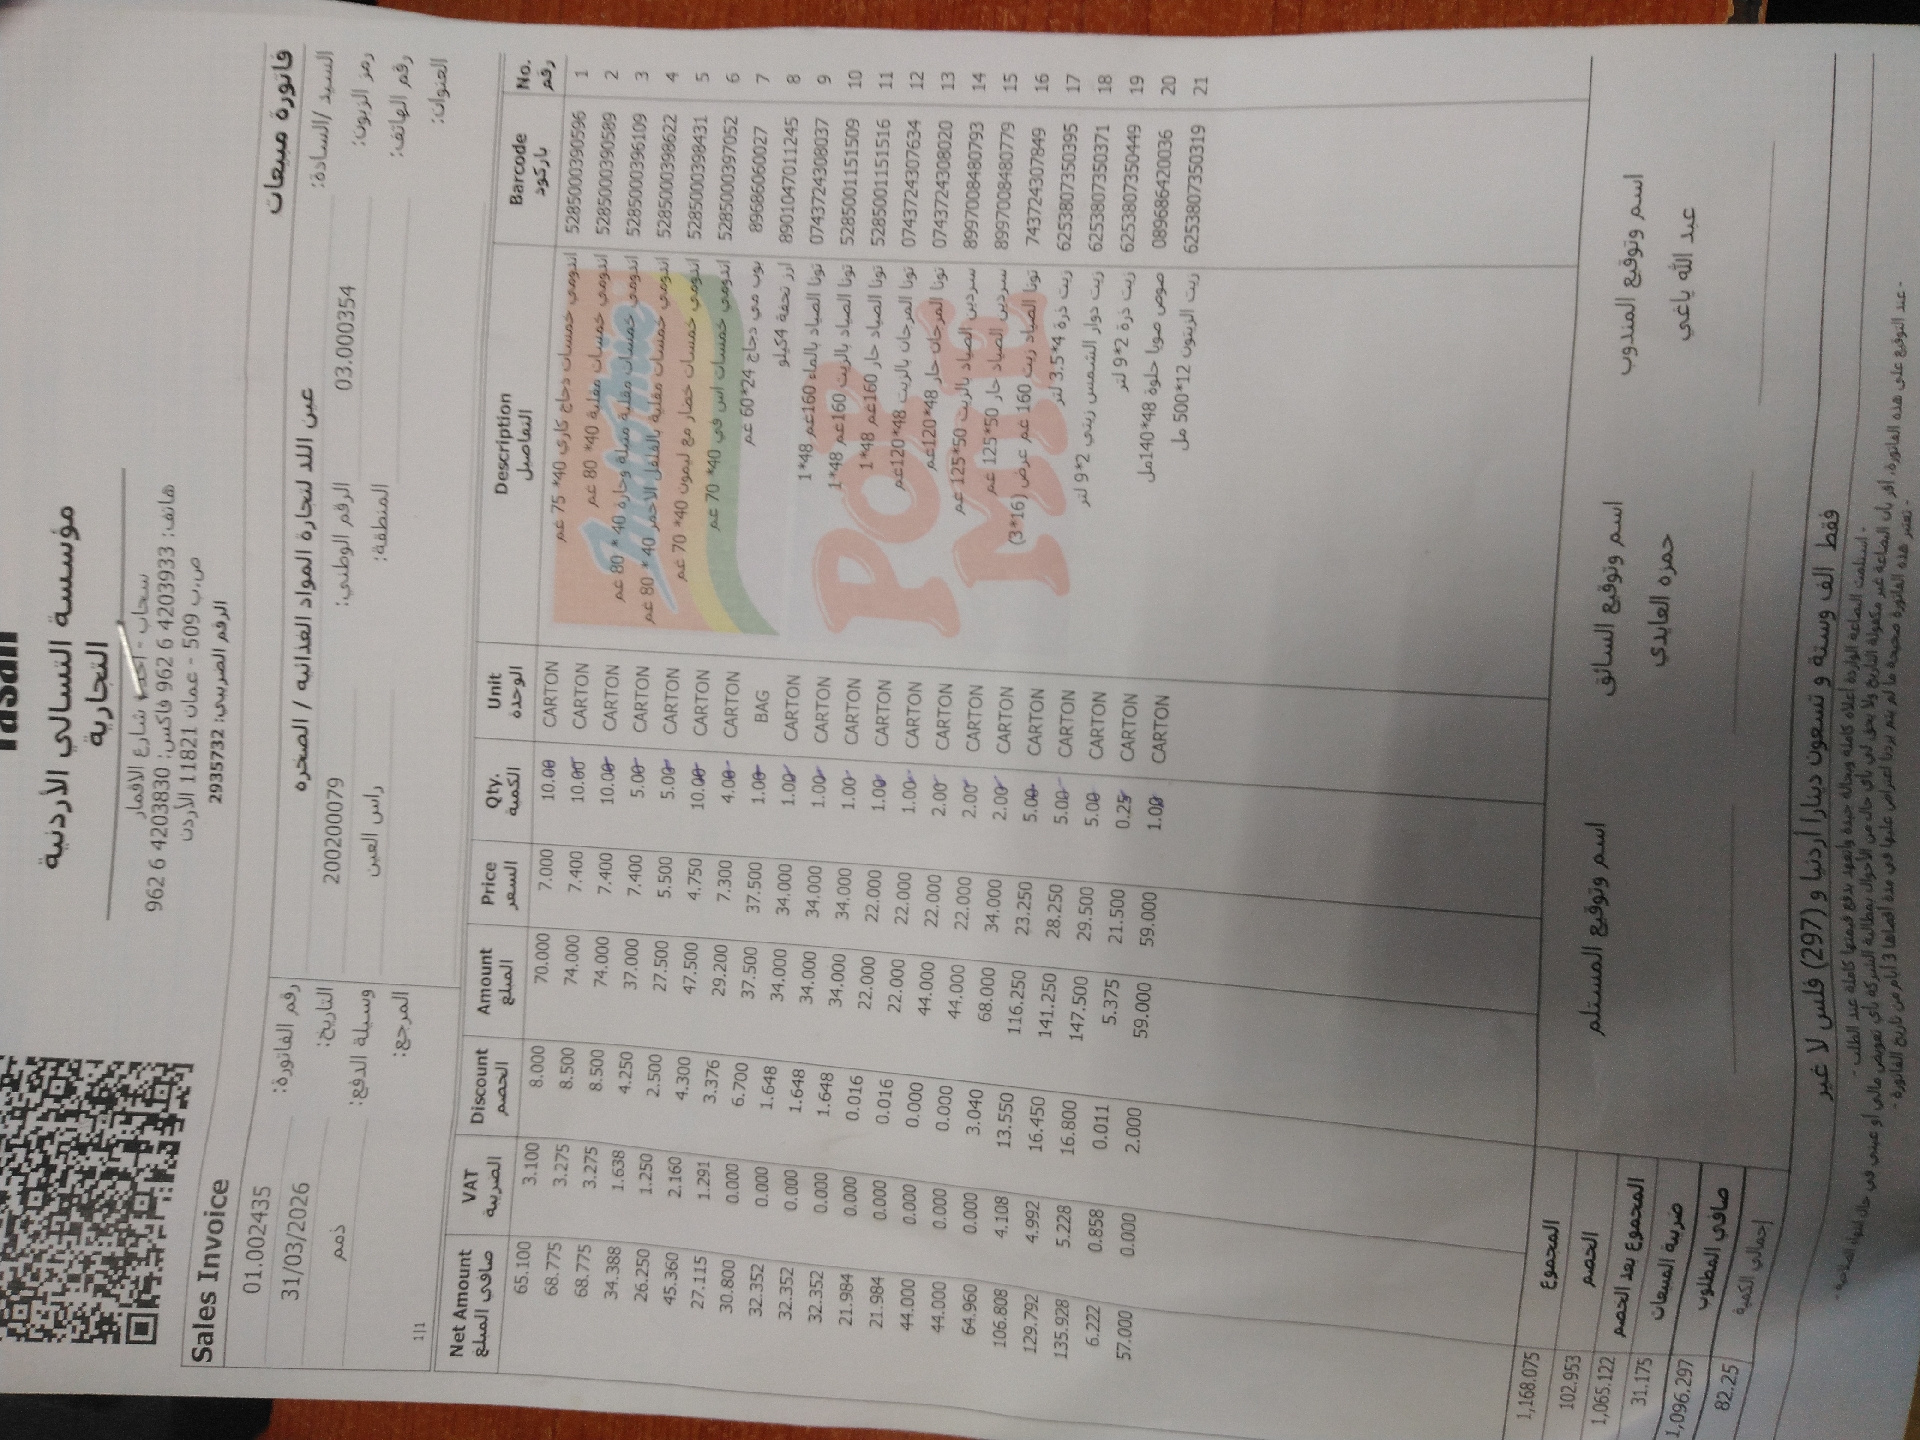 Tasali
مؤسسة التسالي الأردنية
التجارية
سحاب - شارع الاقمار
هاتف: 4203933 6 962 فاكس: 4203830 6 962
ص.ب 509 - عمان 11821 الأردن
الرقم الضريبي: 2935732
Sales Invoice فاتورة مبيعات
السيد /السادة: عين اللد لتجارة المواد الغذائيه / الصخره رقم الفاتورة: 01.002435
رمز الزبون: 03.000354 الرقم الوطني: 200200079 التاريخ: 31/03/2026
رقم الهاتف: المنطقة: راس العين وسيلة الدفع: ذمم
العنوان: المرجع:
1|1
Net Amount VAT Discount Amount Price Qty. Unit Description Barcode No.
صافي المبلغ الضريبة الخصم المبلغ السعر الكمية الوحدة التفاصيل باركود رقم
65.100 3.100 8.000 70.000 7.000 10.00 CARTON اندومي خمسات دجاج كاري 40* 75 غم 5285000390596 1
68.775 3.275 8.500 74.000 7.400 10.00 CARTON اندومي خمسات مقلية 40* 80 غم 5285000390589 2
68.775 3.275 8.500 74.000 7.400 10.00 CARTON اندومي خمسات مقلية متبلة وحارة 40 * 80 غم 5285000396109 3
34.388 1.638 4.250 37.000 7.400 5.00 CARTON اندومي خمسات مقلية بالفلفل الاحمر 40 * 80 غم 5285000398622 4
26.250 1.250 2.500 27.500 5.500 5.00 CARTON اندومي خمسات خضار مع ليمون 40* 70 غم 5285000398431 5
45.360 2.160 4.300 47.500 4.750 10.00 CARTON اندومي خمسات اس في 40* 70 غم 5285000397052 6
27.115 1.291 3.376 29.200 7.300 4.00 CARTON بوب مي دجاج 24*60 غم 89686060027 7
30.800 0.000 6.700 37.500 37.500 1.00 BAG ارز نجمة 4كيلو 8901047011245 8
32.352 0.000 1.648 34.000 34.000 1.00 CARTON تونا الصياد بالماء 160غم 48*1 0743724308037 9
32.352 0.000 1.648 34.000 34.000 1.00 CARTON تونا الصياد بالزيت 160غم 48*1 5285001151509 10
32.352 0.000 1.648 34.000 34.000 1.00 CARTON تونا الصياد حار 160غم 48*1 5285001151516 11
21.984 0.000 0.016 22.000 22.000 1.00 CARTON تونا المرجان بالزيت 48*120غم 0743724307634 12
21.984 0.000 0.016 22.000 22.000 1.00 CARTON تونا المرجان حار 48*120غم 0743724308020 13
44.000 0.000 0.000 44.000 22.000 2.00 CARTON سردين الصياد بالزيت 50*125 غم 8997008480793 14
44.000 0.000 0.000 44.000 22.000 2.00 CARTON سردين الصياد حار 50*125 غم 8997008480779 15
64.960 0.000 3.040 68.000 34.000 2.00 CARTON تونا الصياد زيت 160 غم عرض (16*3) 743724307849 16
106.808 4.108 13.550 116.250 23.250 5.00 CARTON زيت ذرة 4*3.5 لتر 6253807350395 17
129.792 4.992 16.450 141.250 28.250 5.00 CARTON زيت دوار الشمس زيتي 2*9 لتر 6253807350371 18
135.928 5.228 16.800 147.500 29.500 5.00 CARTON زيت ذرة 2*9 لتر 6253807350449 19
6.222 0.858 0.011 5.375 21.500 0.25 CARTON صوص صويا حلوة 48*140مل 089686420036 20
57.000 0.000 2.000 59.000 59.000 1.00 CARTON زيت الزيتون 12*500 مل 6253807350319 21
المجموع 1,168.075
الخصم 102.953
المجموع بعد الخصم 1,065.122
ضريبة المبيعات 31.175
صافي المطلوب 1,096.297
إجمالي الكمية 82.25
اسم وتوقيع المندوب اسم وتوقيع السائق اسم وتوقيع المستلم
عبد الله ياغي حمزه العابدي
فقط الف وستة و تسعون دينارا أردنيا و (297) فلس لا غير
- استلمت البضاعة الواردة أعلاه كاملة وبحالة جيدة واتعهد بدفع قيمتها كاملة عند الطلب.
- عند التوقيع على هذه الفاتورة، أقر بأن البضاعة غير مكفولة التاريخ ولا يحق لي بأي حال من الأحوال بمطالبة الشركة بأي تعويض مالي أو عيني في حال انتهاء الصلاحية.
- تعتبر هذه الفاتورة صحيحة ما لم يتم يردنا اعتراض عليها في مدة أقصاها 3 أيام من تاريخ الفاتورة.